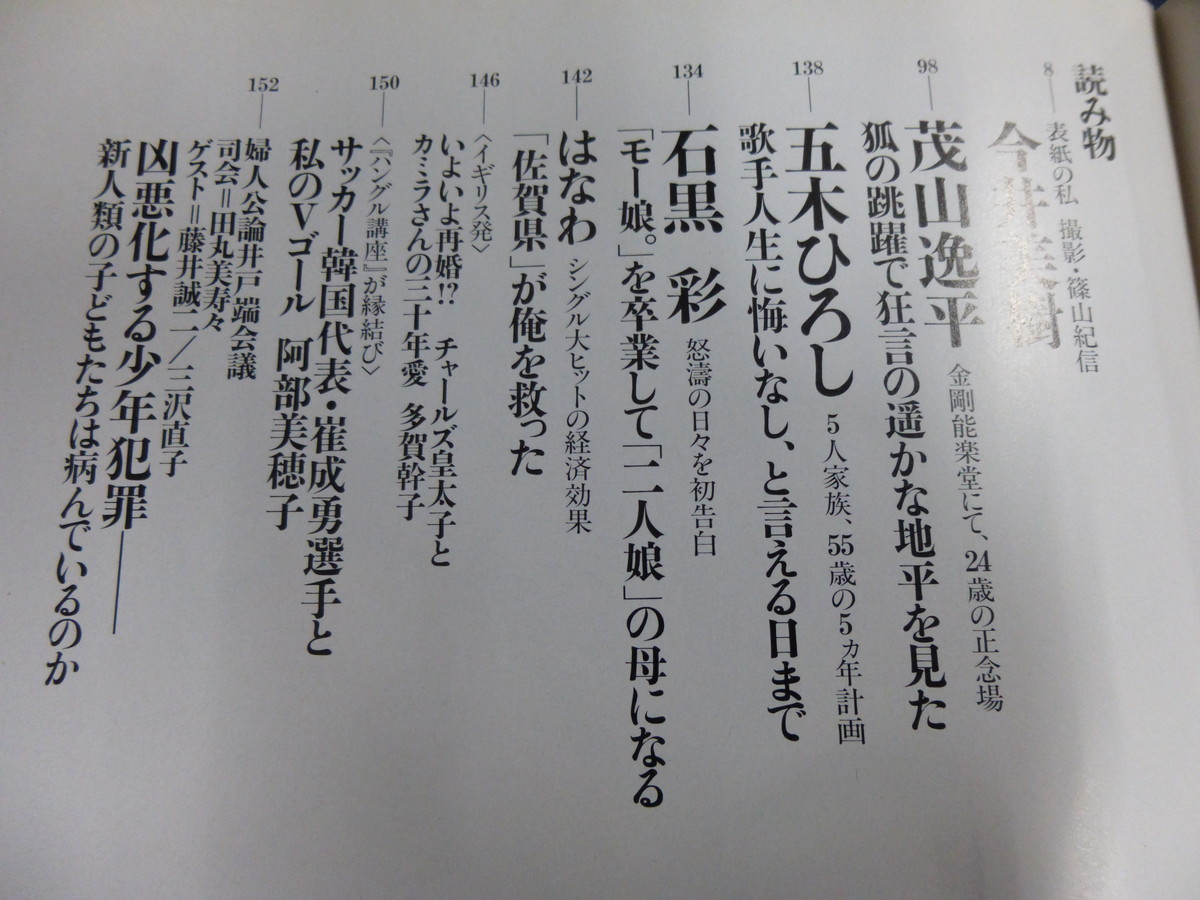 読み物
8
表紙の私 撮影・篠山紀信
今井美樹
98
茂山逸平 金剛能楽堂にて、24歳の正念場
狐の跳躍で狂言の遥かな地平を見た
138
五木ひろし 5人家族、55歳の5ヵ年計画
歌手人生に悔いなし、と言える日まで
134
石黒 彩 怒濤の日々を初告白
「モー娘。」を卒業して「二人娘」の母になる
142
はなわ シングル大ヒットの経済効果
「佐賀県」が俺を救った
146
〈イギリス発〉
いよいよ再婚!? チャールズ皇太子と
カミラさんの三十年愛 多賀幹子
150
〈『ハングル講座』が縁結び〉
サッカー韓国代表・崔成勇選手と
私のVゴール 阿部美穂子
152
婦人公論井戸端会議
司会=田丸美寿々
ゲスト=藤井誠二/三沢直子
凶悪化する少年犯罪――
新人類の子どもたちは病んでいるのか